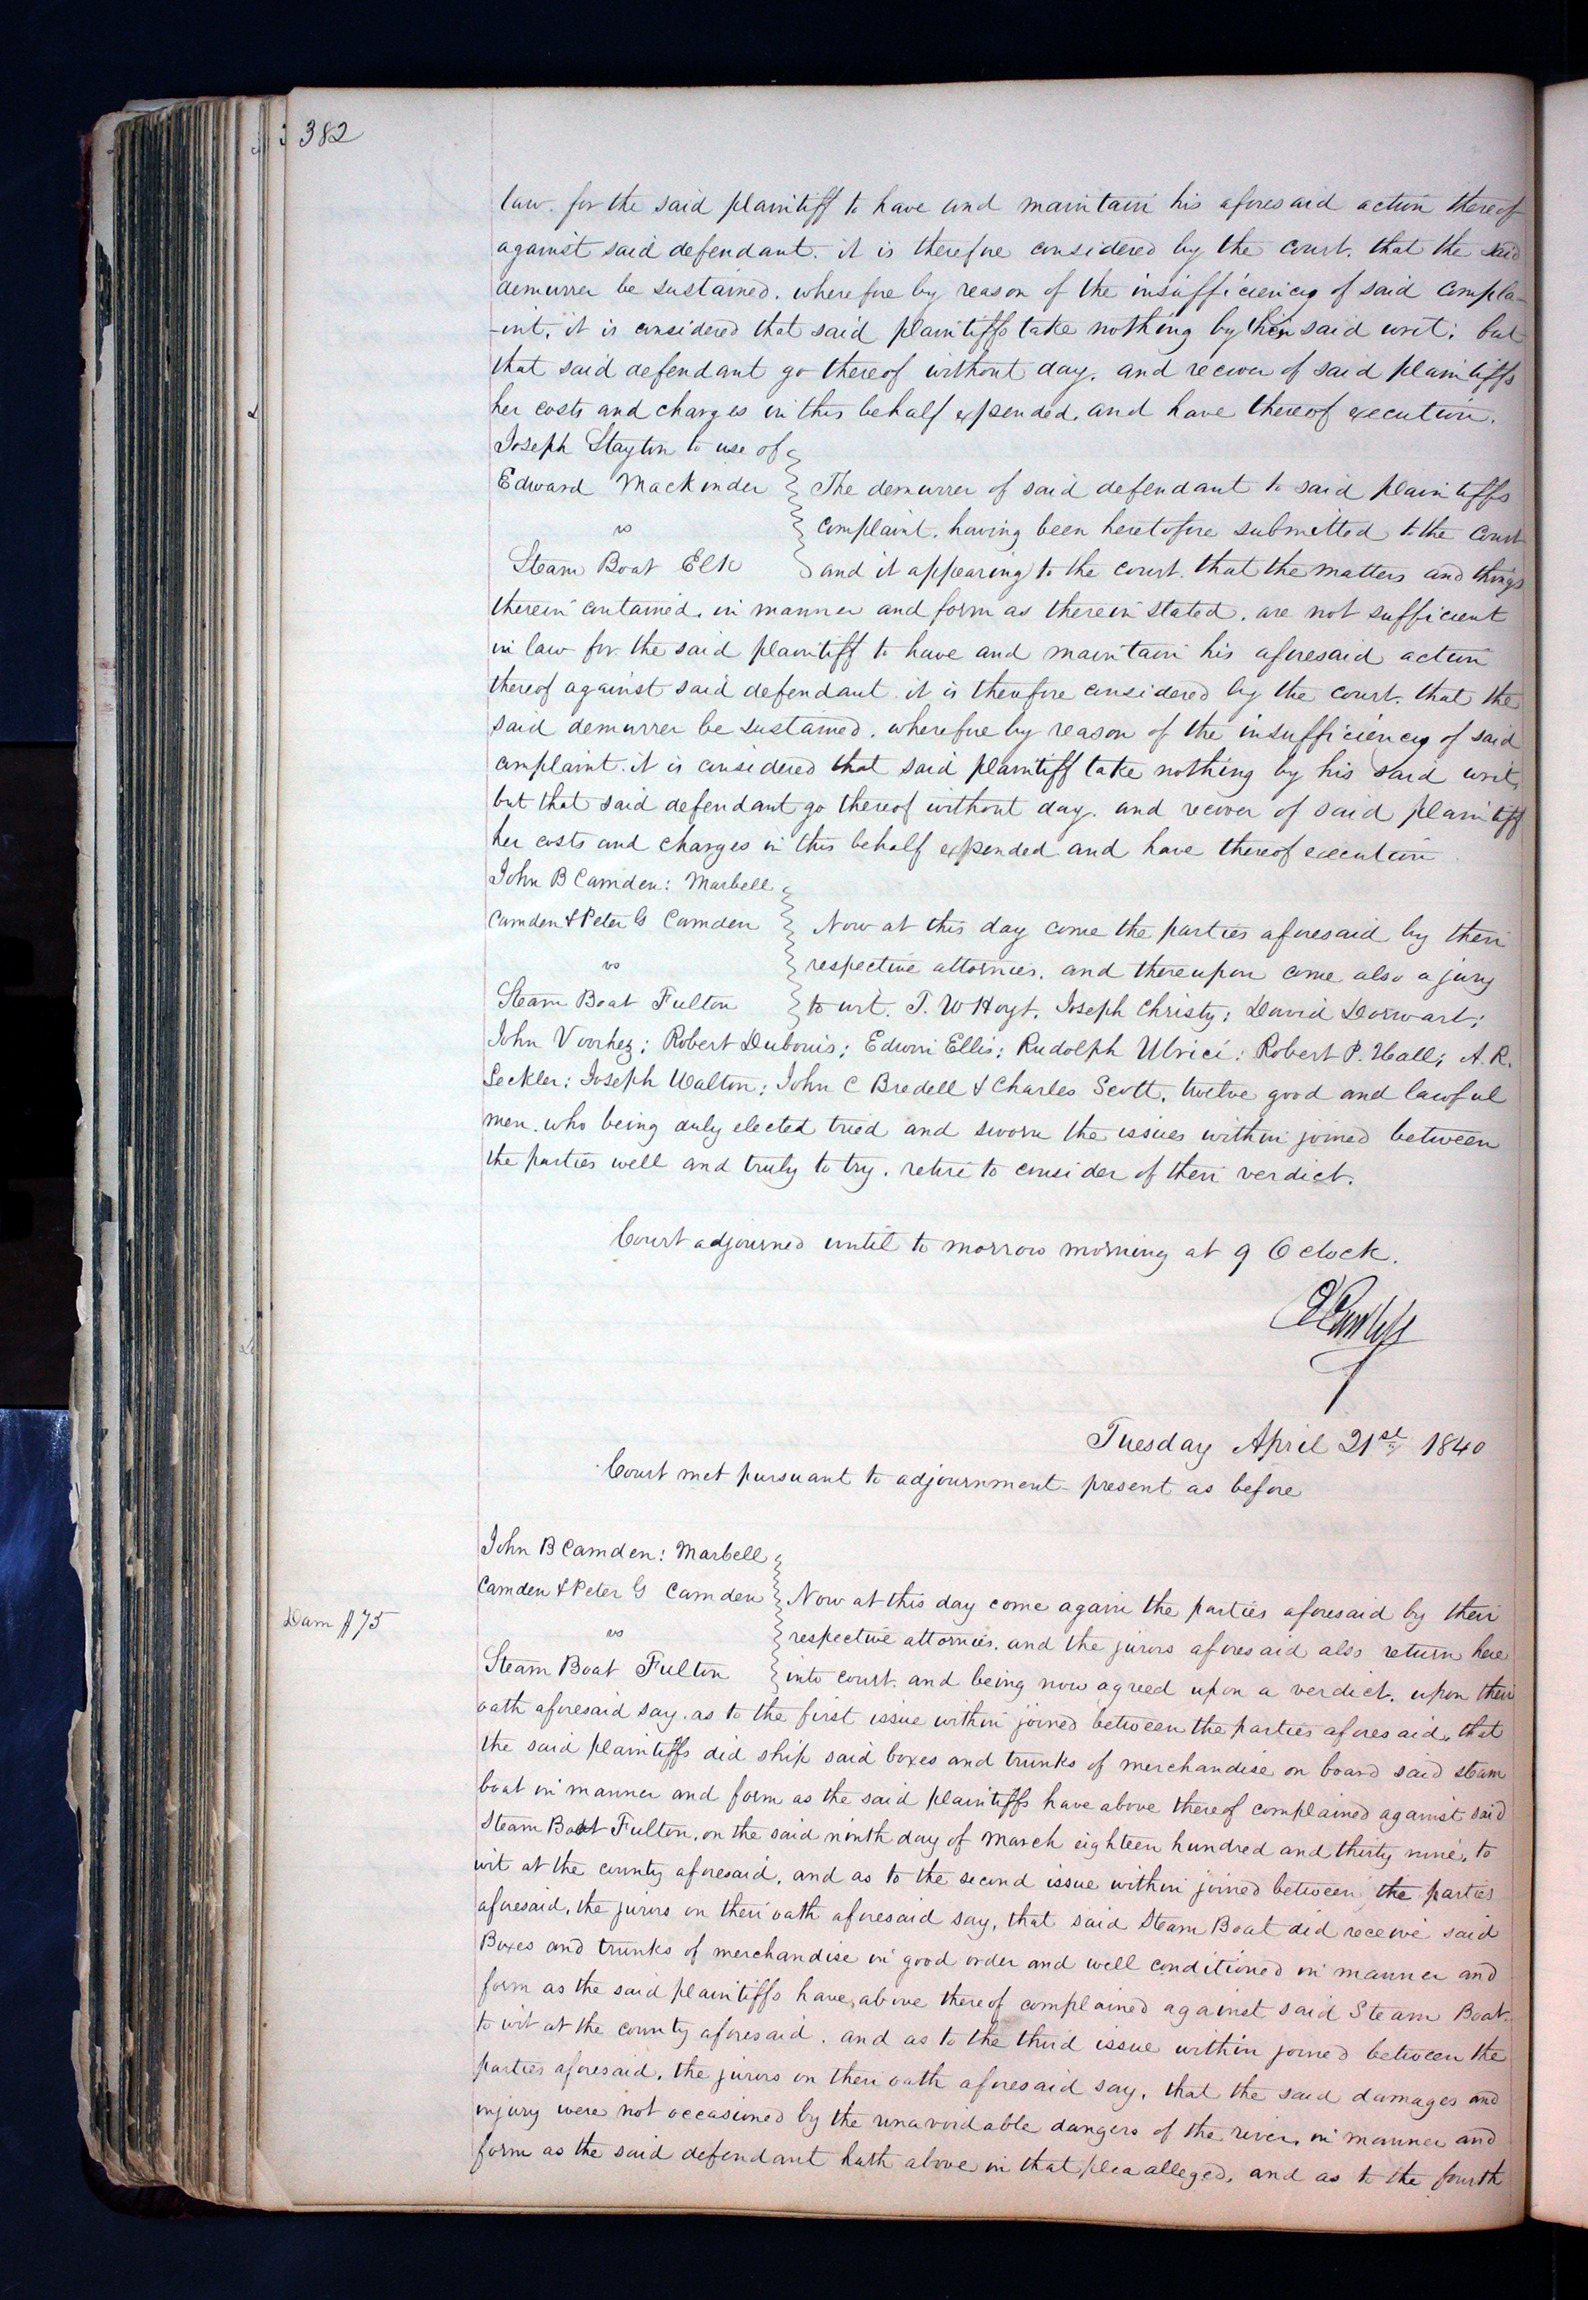 382
law. for the said plaintiff to have and maintain his aforesaid action thereof
against said defendant. it is therefore considered by the court. that the said
demurrer be sustained. wherefore by reason of the insufficiency of said compla-
-int, it is considered that said plaintiffs take nothing by their said writ; but
that said defendant go thereof without day. and recover of said plaintiffs
her costs and charges in this behalf expended. and have thereof execution.
Joseph Slayton to use of
Edward Mackinder The demurrer of said defendant to said plaintiffs
vs complaint. having been heretofore submitted to the court
Steam Boat Elk and it appearing to the court. that the matters and things
therein contained. in manner and form as therein stated. are not sufficient
in law for the said plaintiff to have and maintain his aforesaid action
thereof against said defendant it is therefore considered by the court. that the
said demurrer be sustained. wherefore by reason of the insufficiency of said
complaint. it is considered that said plaintiff take nothing by his said writ,
but that said defendant go thereof without day. and recover of said plaintiff
her costs and charges in this behalf expended and have thereof execution
John B Camden: Marbell
Camden & Peter G Camden Now at this day come the parties aforesaid by their
vs respective attornies. and thereupon come also a jury
Steam Boat Fulton to wit. T. W Hoyt. Joseph Christy; David Dorwart;
John Voorhez; Robert Dubouis; Edwin Ellis; Rudolph Ulrici; Robert P. Hall; A. R.
Seckler; Joseph Walton; John C Bredell & Charles Scott. twelve good and lawful
men. who being duly elected tried and sworn the issues within joined between
the parties well and truly to try. retire to consider of their verdict.
Court adjourned until to morrow morning at 9 O clock.
Tuesday April 21st 1840
Court met pursuant to adjournment present as before
John B Camden: Marbell
Camden & Peter G Camden Now at this day come again the parties aforesaid by their
Dam $75
vs respective attornies. and the jurors aforesaid also return here
Steam Boat Fulton into court. and being now agreed upon a verdict. upon their
oath aforesaid say. as to the first issue within joined between the parties aforesaid, that
the said plaintiffs did ship said boxes and trunks of merchandise on board said steam
boat in manner and form as the said plaintiffs have above thereof complained against said
Steam Boat Fulton, on the said ninth day of March eighteen hundred and thirty nine, to
wit at the county aforesaid, and as to the second issue within joined between the parties
aforesaid, the jurors on their oath aforesaid say, that said Steam Boat did receive said
Boxes and trunks of merchandise in good order and well conditioned in manner and
form as the said plaintiffs have above thereof complained against said Steam Boat.
to wit at the county aforesaid. and as to the third issue within joined between the
parties aforesaid. the jurors on their oath aforesaid say. that the said damages and
injury were not occasioned by the unavoidable dangers of the river, in manner and
form as the said defendant hath above in that plea alleged, and as to the fourth